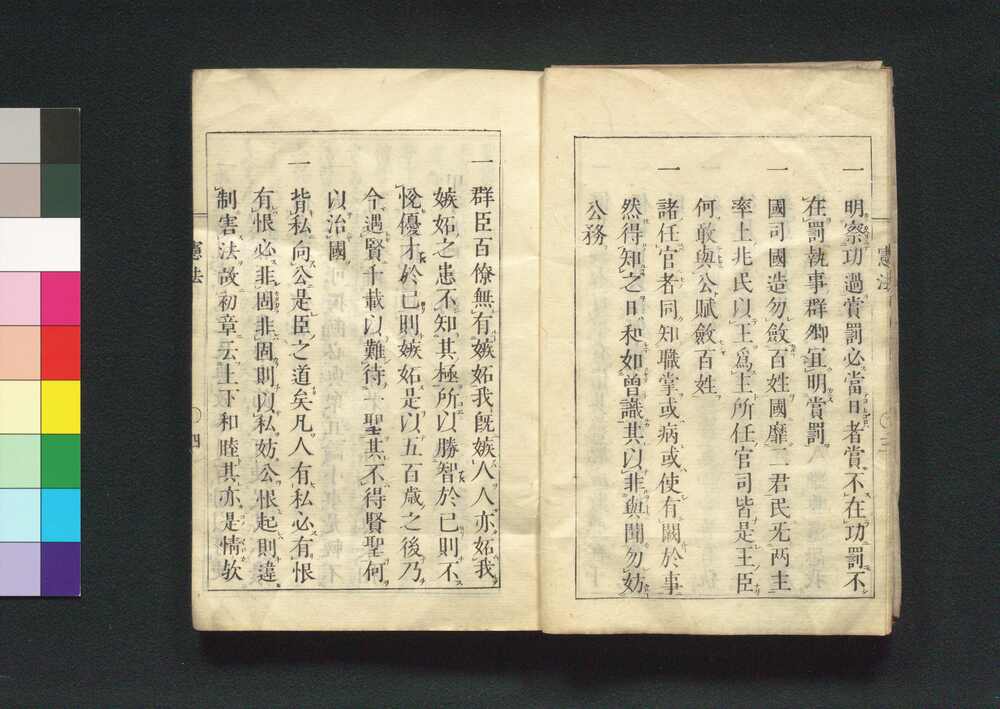 一明察功過賞罰必當日者賞不在功罰不
在罰執事群卿宜明賞罰
一國司國造勿斂百姓國靡二君民无兩主
率土兆民以王爲主所任官司皆是王臣
何敢與公賦斂百姓
一諸任官者同知職掌或病或使有闕於事
然得知之日和如曾識其以非與聞勿妨
公務
憲法
三
一群臣百僚無有嫉妬我旣嫉人人亦妬我
嫉妬之患不知其極所以勝智於已則不
悅優才於已則嫉妬是以五百歲之後乃
今遇賢千載以難待一聖其不得賢聖何
以治國
一背私向公是臣之道矣凡人有私必有恨
有恨必非固非固則以私妨公恨起則違
制害法故初章云上下和睦其亦是情欤
憲法
四